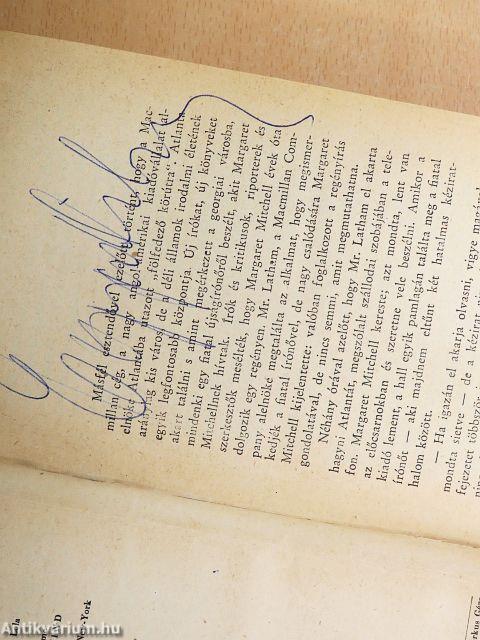 Másfél esztendővel ezelőtt történt, hogy a Mac-
millan cég, a nagy angol-amerikai kiadóvállalat al-
elnöke Atlantába utazott „fölfedező körútra". Atlanta
aránylag kis város, de a déli államok irodalmi életének
egyik legfontosabb központja. Új írókat, új könyveket
akart találni s amint megérkezett a georgiai városba,
mindenki egy fiatal újságírónőről beszélt, akit Margaret
Mitchellnek hívtak. Írók és kritikusok, riporterek és
szerkesztők mesélték, hogy Margaret Mitchell évek óta
dolgozik egy regényen. Mr. Latham, a Macmillan Com-
pany alelnöke megtalálta az alkalmat, hogy megismer-
kedjék a fiatal írónővel, de nagy csalódására Margaret
Mitchell kijelentette: valóban foglalkozott a regényírás
gondolatával, de nincs semmi, amit megmutathatna.
Néhány órával azelőtt, hogy Mr. Latham el akarta
hagyni Atlantát, megszólalt szállodai szobájában a tele-
fon. Margaret Mitchell kereste; azt mondta, lent van
az előcsarnokban és szeretne vele beszélni. Amikor a
kiadó lement, a hall egyik pamlagán találta meg a fiatal
írónőt — aki majdnem eltűnt két hatalmas kézirat-
halom között.
— Ha igazán el akarja olvasni, vigye magával
mondta sietve — de a kézirat
fejezetet többször
Lula
New-York
Antikvárium.hu